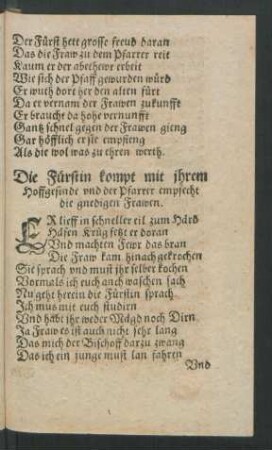 Der Fürst hett grosse freud daran
Das die Fraw zu dem Pfarrer reit
Kaum er der abechewr erbeit
Wie sich der Pfaff gewurden würd
Er wuth dort her den alten fürt
Da er vernam der Frawen zukunfft
Er braucht da hohe vernunfft
Gantz schnel gegen der Frawen gieng
Gar höfflich er sie empfieng
Als die wol was zu ehren werth.
Die Fürstin kompt mit jhrem
Hoffgesinde vnd der Pfarrer empfecht
die gnedigen Frawen.
ER lieff in schneller eil zum Härd
Häfen Krüg setzt er doran
Vnd machten Fewr das bran
Die Fraw kam hinach gekrochen
Sie sprach vnd must jhr selber kochen
Vormals ich euch auch waschen sach
Nu geht herein die Fürstin sprach
Ich mus mit euch studirn
Vnd habt jhr weder Mägd noch Dirn
Ja Fraw es ist auch nicht sehr lang
Das mich der Bischoff darzu zwang
Das ich ein junge must lan fahren
Vnd